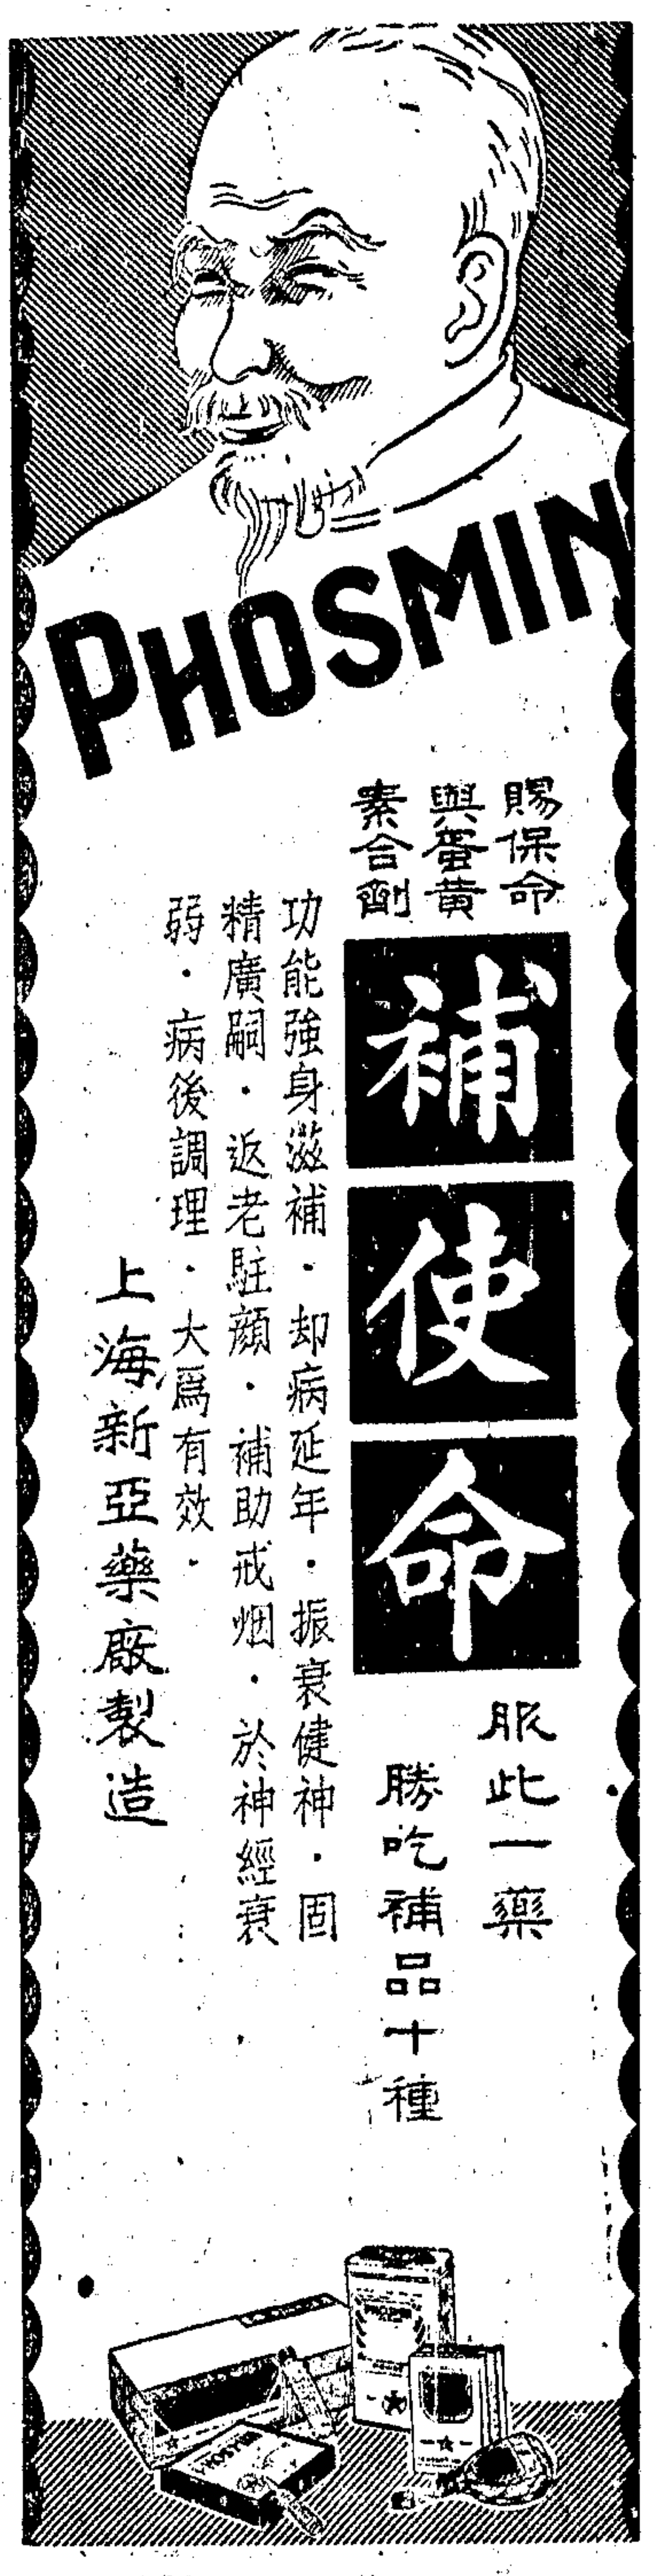 PHOSMIN
賜保命
與蛋黃
素合劑
補使命
服此一藥
勝吃補品十種
功能強身滋補·却病延年·振衰健神·固
精廣嗣·返老駐顏·補助戒烟·於神經衰
弱·病後調理·大爲有效·
上海新亞藥廠製造